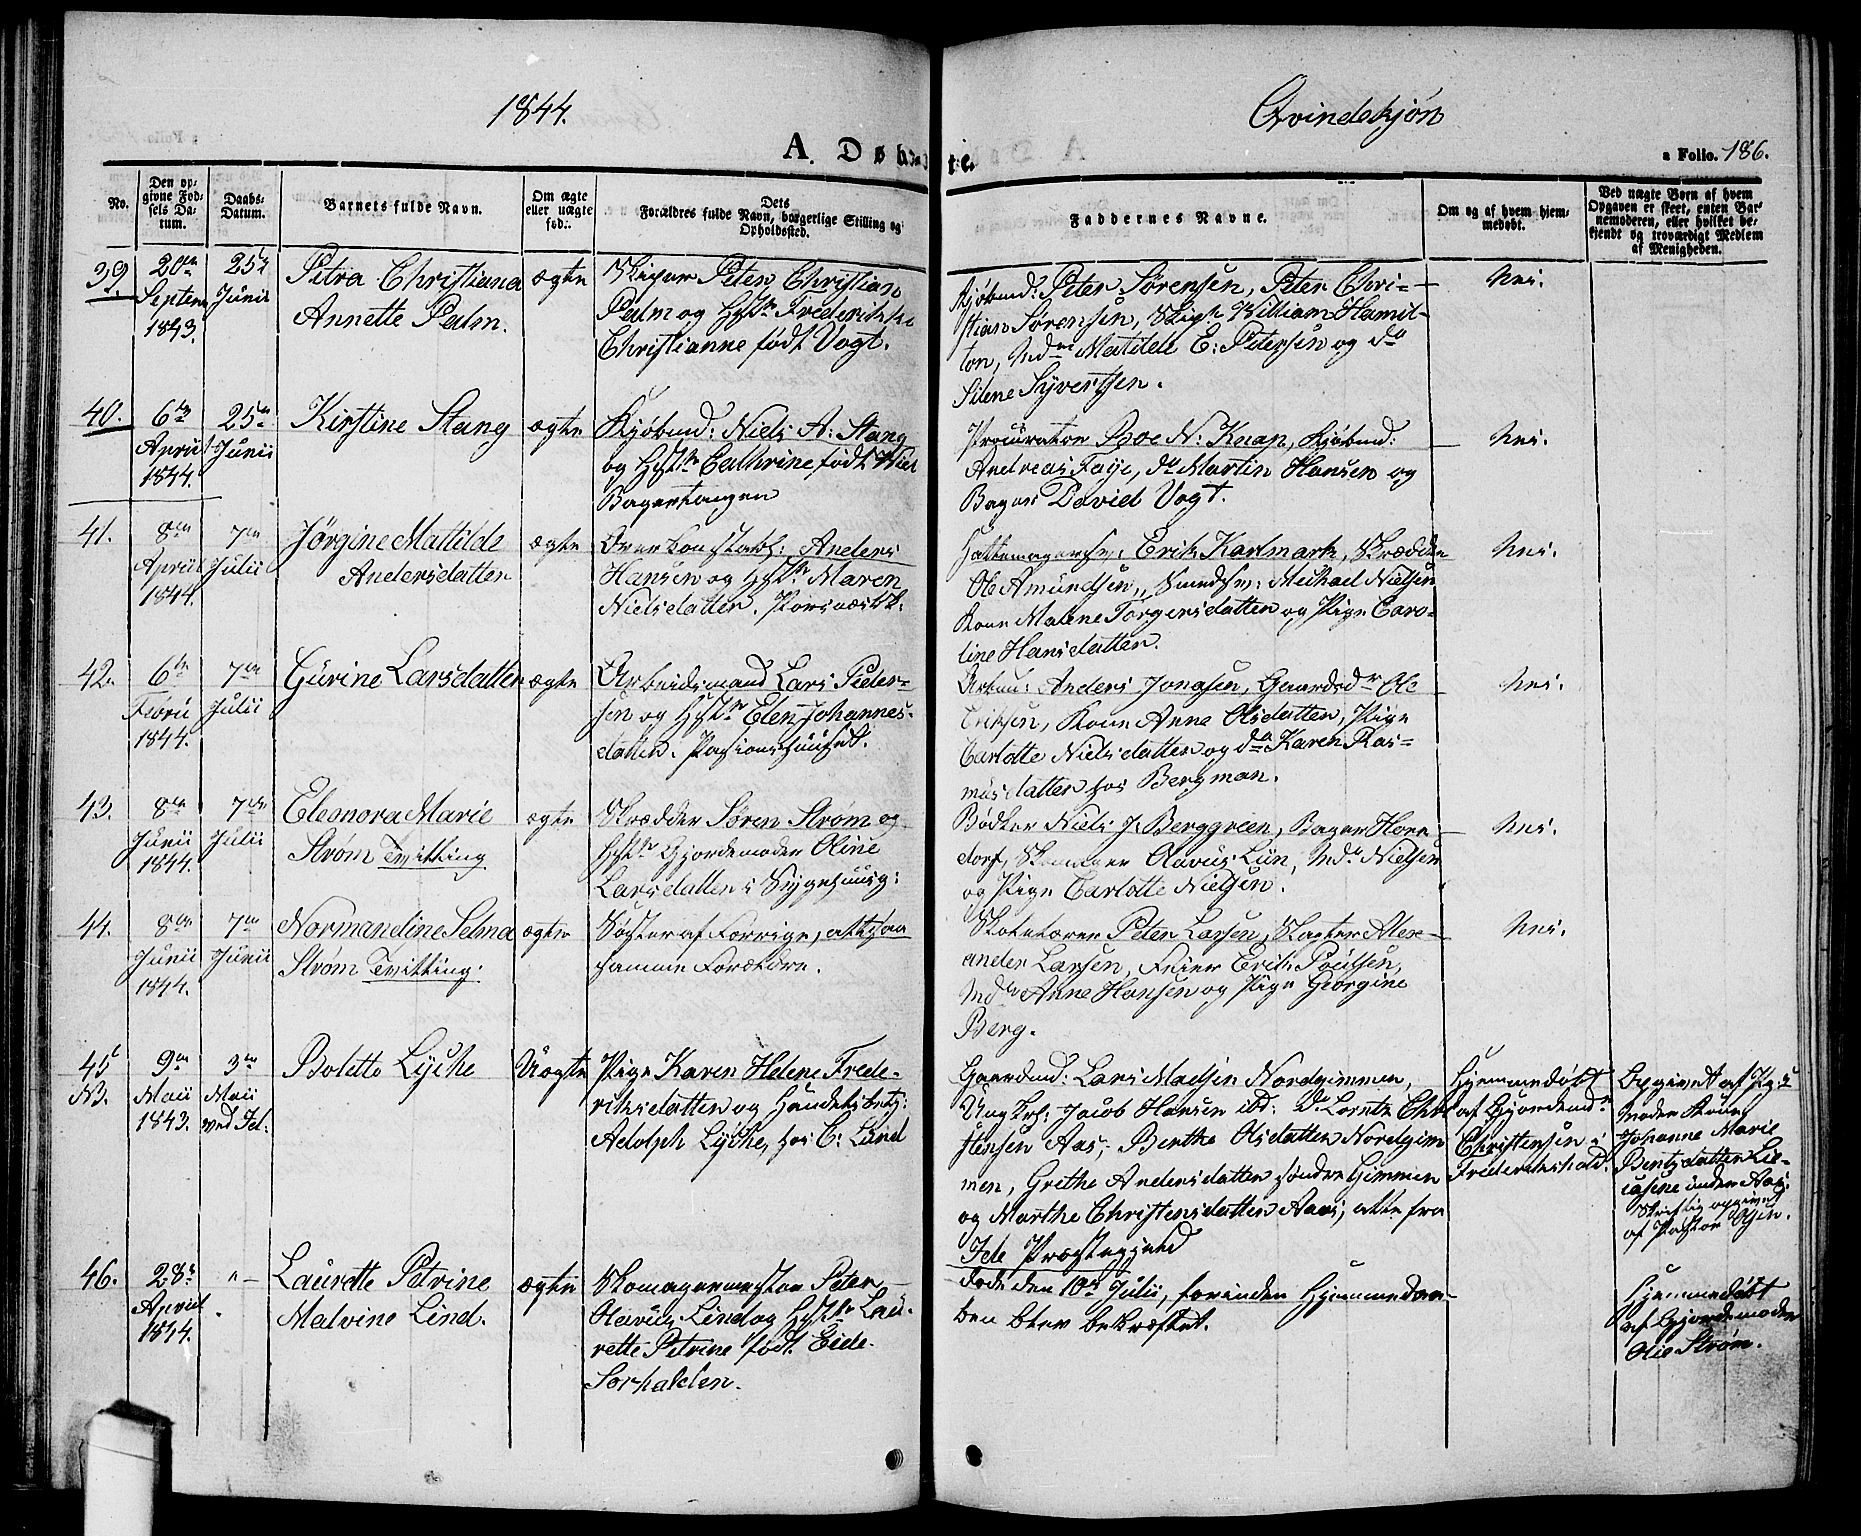 1844.
Qvindekjøn
A. Døbte.
a Folio. 186.
No.
Den op-
givne Fød-
sels Da-
tum.
Daabs-
Datum.
Barnets fulde Navn.
Om ægte
eller uægte
fød.
Dets
Forældres fulde Navn, borgerlige Stilling og
Opholdssted.
Faddernes Navne.
Om og af hvem hjem-
medøbt.
Ved uægte Børn af hvem
Opgaven er skeet, enten Bar-
nemoderen, eller hvilket be-
kjendt og troværdigt Medlem
af Menigheden.
39.
20de
Septem
1843.
25de
Junii
Petra Christiana
Annette Palm.
ægte
Skipper Peter Christian
Palm og Hst: Frederikke
Christianne født Vogt.
Kjøbmd: Peter Sørensen, Peter Chri-
stian Sørensen, Skip: William Hamil-
ton, Md: Matilde E: Petersen og do
Silene Syvertsen.
Nei.
40.
6te
April
1844.
25de
Junii
Kirstine Stang
ægte
Kjøbmd: Niels A: Stang
og Hst: Cathrine født Wiel
Bagertangen
Procurator Boe N: Knap, Kjøbmd:
Andreas Faye, do Martin Hansen og
Bager David Vogt.
Nei.
41.
8de
April
1844.
7de
Julii
Jørgine Mathilde
Andersdatter
ægte
Overkonstabl: Anders
Hansen og Hst: Maren
Nielsdatter.
Hattemagersv: Erik Karlmark, Skrædder
Ole Amundsen, Smedsv: Michael Nielsen
Kone Malene Torgersdatter og Pige Caro-
line Hansdatter.
Nei.
42.
6te
Febru
1844.
7de
Julii
Gurine Larsdatter
ægte
Arbeidsmand Lars Peter-
sen og Hst: Elen Johannes-
datter.
Arbm: Anders Jonasen, Gaardsdr Ole
Eriksen, Kone Anne Olsdatter, Pige
Carlotte Nielsdatter og do Karen Ras-
musdatter hos Bergman.
Nei.
43.
8de
Junii
1844.
7de
Julii
Eleonora Marie
Strøm Tvilling
ægte
Skrædder Søren Strøm og
Hst: Gjordemoder Oline
Larsdatter i Sygehuusg:
Bødker Niels J: Berggreen, Bager Horn-
dorf, Skomager Olavus Lün, Md: Nielsen
og Pige Carlotte Nielsen.
Nei.
44.
8de
Junii
1844.
7de
Junii
Normandine Selma
Strøm Tvilling.
ægte
Søster af Forrige, altsaa
samme Forældre.
Skolelærer Peter Larsen, Alex-
ander Larsen, Feier Erik Poulsen,
Md: Anne Hansen og Pige Georgine
Berg.
Nei.
45
NB.
9de
Maii
1843.
3de
Maii
ved Id.
Bolette Lyche
Uægte
Pige Karen Helene Frede-
riksdatter og Handelsbetj:
Adolph Lyche, hos C: Lund
Gaardmd: Lars Madsen Nordgimmen,
Ungkrl: Jacob Hansen ibd: do Lorentz Chri
stensen Aas, Berthe Olsdatter Nordgim
men, Grethe Andersdatter søndre Gimmen
og Marthe Christensdatter Aas, alle fra
Ide Præstegjeld
Hjemmedøbt
af Gjordemdr
Christensen i
Frederikshald.
Opgivet af
Moder Kone
Johanne Marie
Bentsdatter
under Aas,
skriftlig opgivet
af Pastor
46.
28de
April
1844.
"
Laurette Petrine
Malvine Lind.
ægte
Skomagermester Peter
Olavus Lind og Hst: Lau-
rette Petrine født Eide.
Sørhalden.
Døde den 10de Julii, forinden Hjemmedaa-
ben blev bekræftet.
Hjemmedøbt
af Gjordemoder
Olie Strøm.